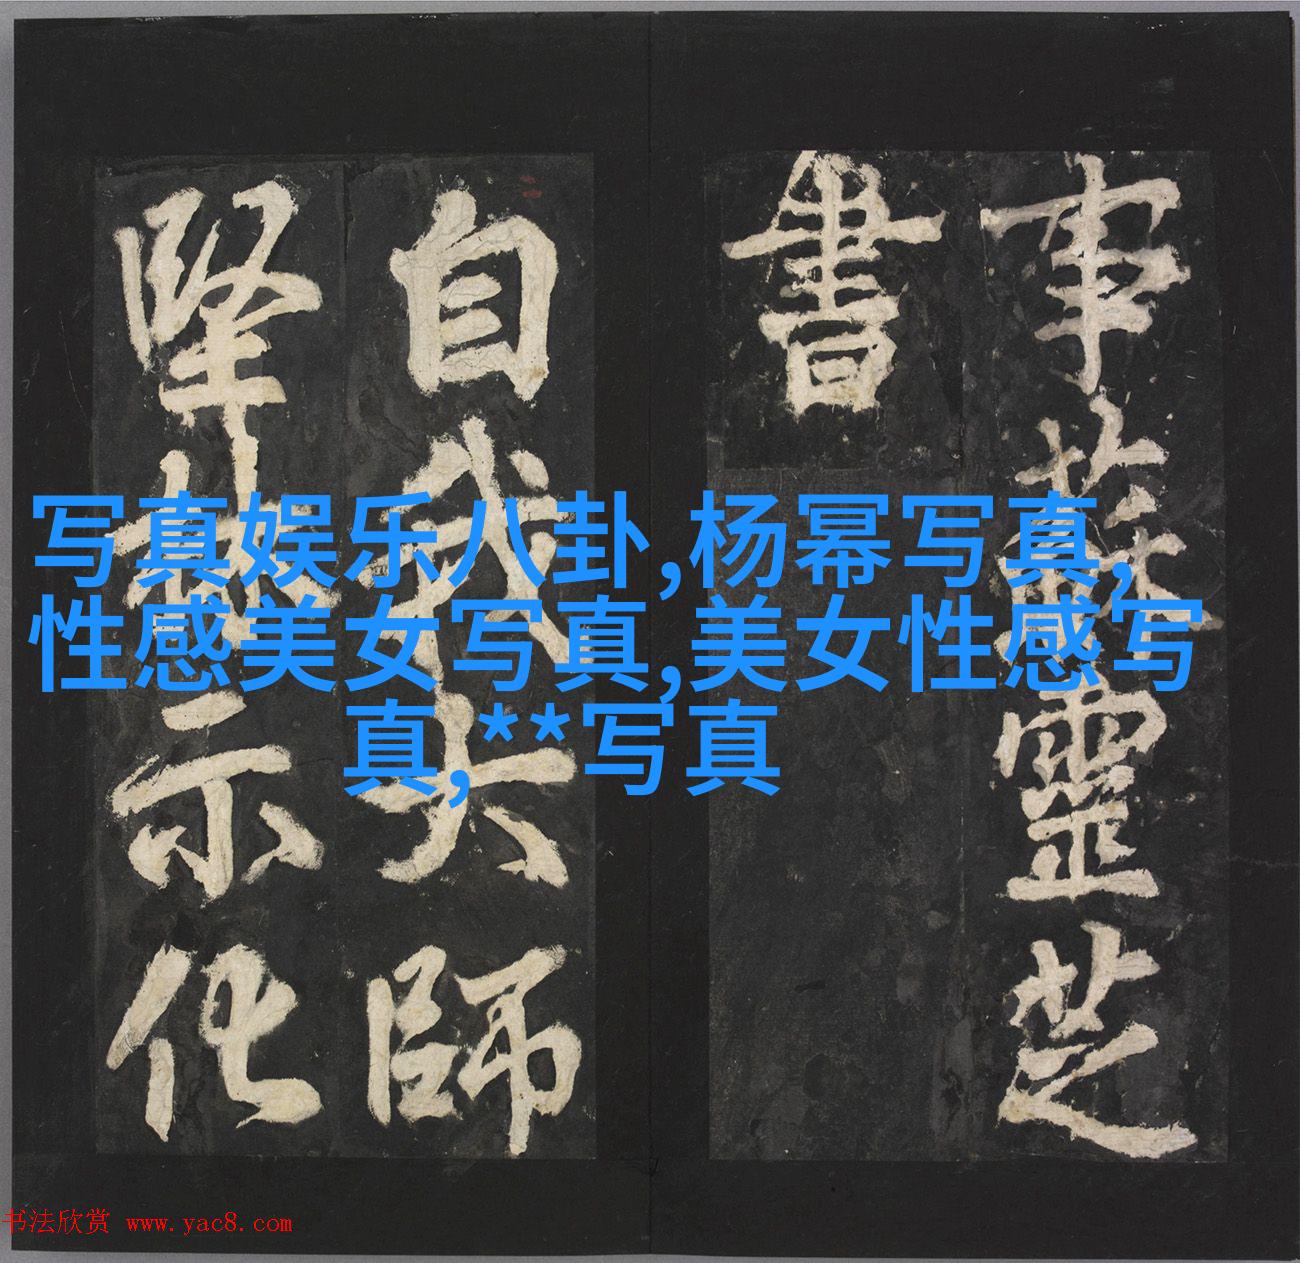 事蘇靈芝
書
自我大師
堅林示化
写真娱乐八卦,杨幂写真,
性感美女写真,美女性感写
真,**写真
书法欣赏 www.yac8.com